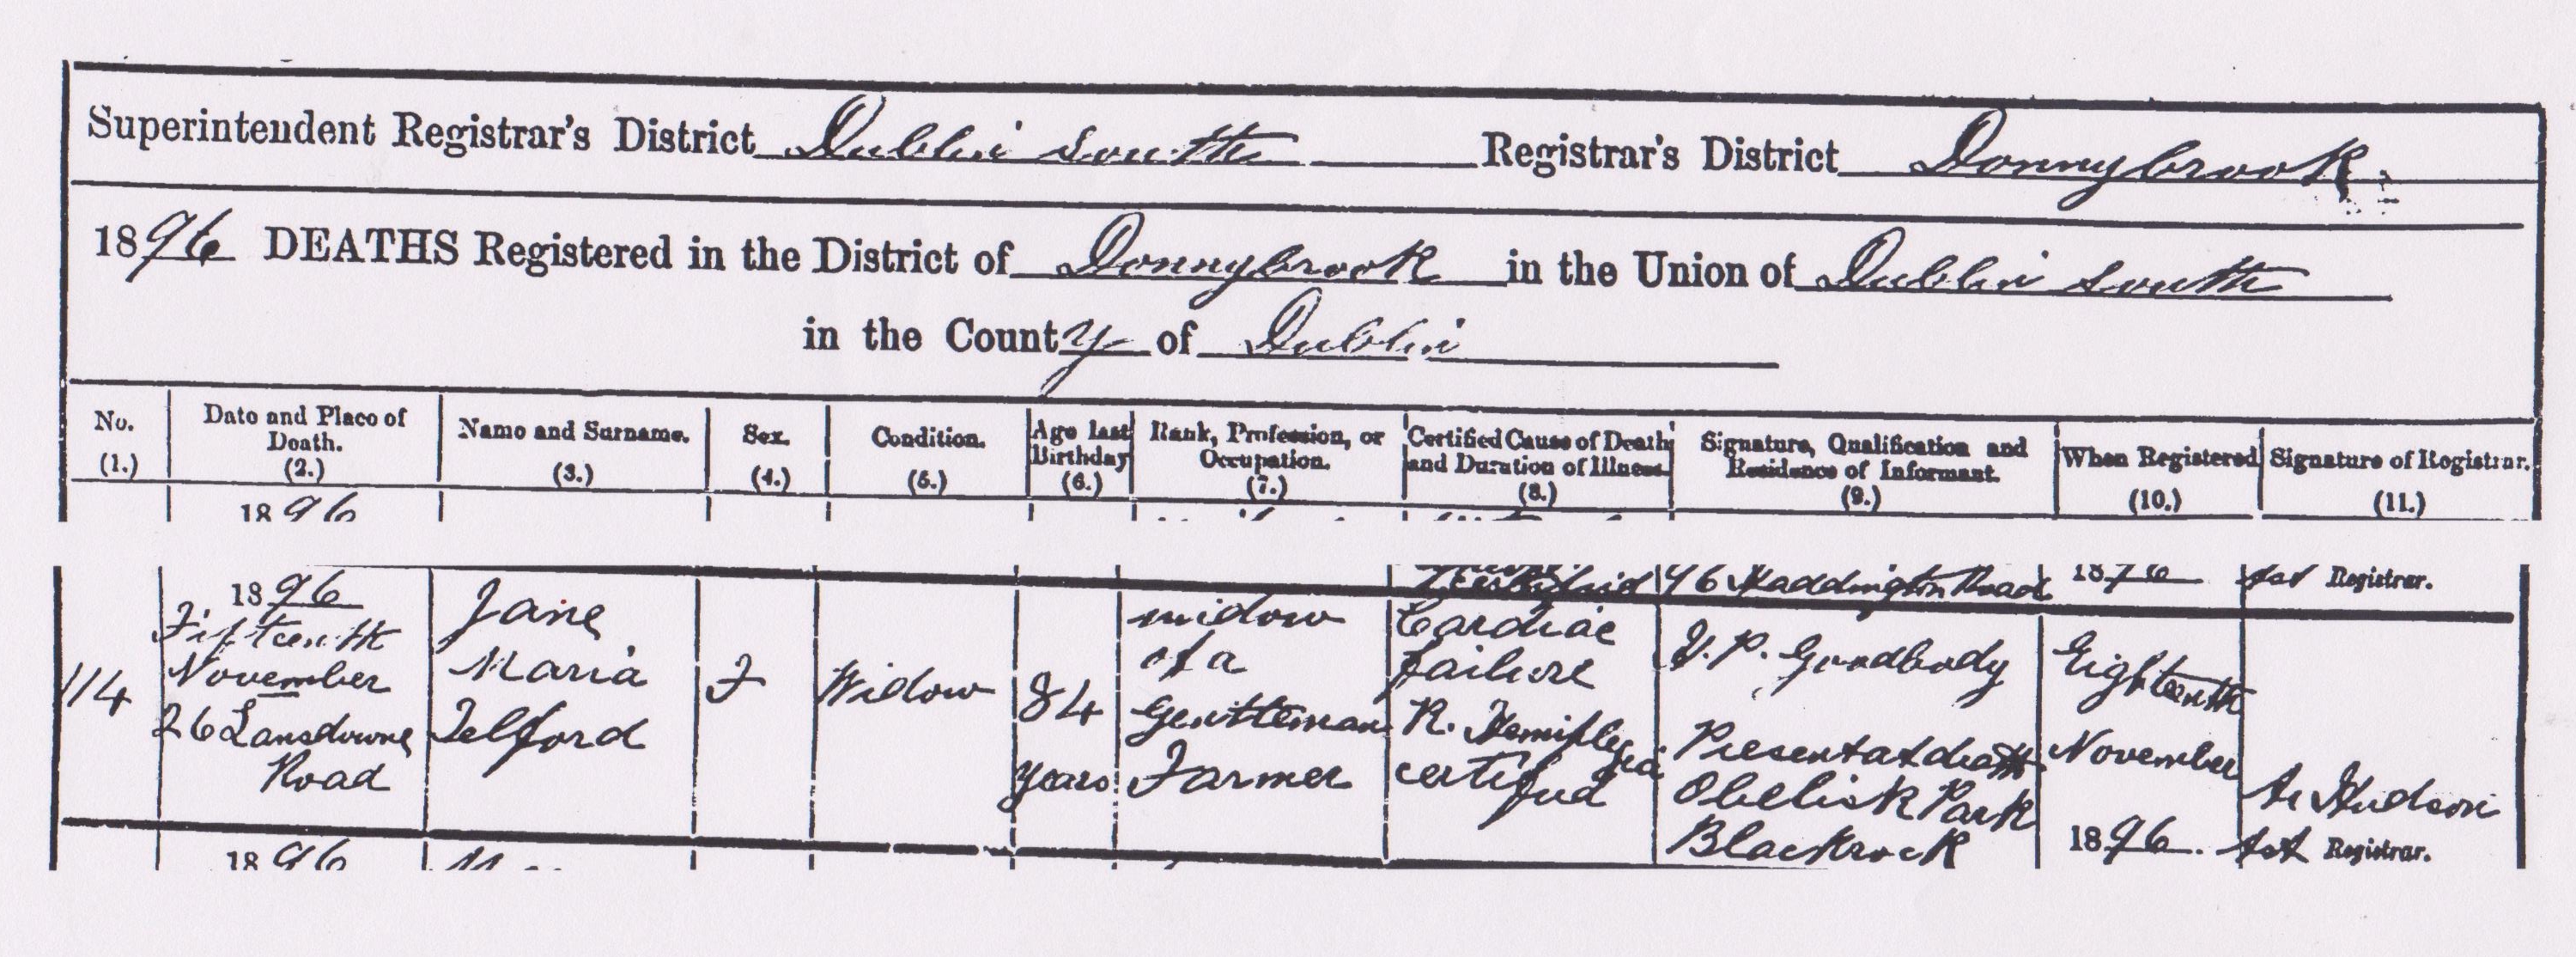 Superintendent Registrar's District Dublin South Registrar's District Donnybrook
1896 DEATHS Registered in the District of Donnybrook in the Union of Dublin South
in the County of Dublin
No. (1.)
Date and Place of Death. (2.)
Name and Surname. (3.)
Sex. (4.)
Condition. (5.)
Age last Birthday (6.)
Rank, Profession, or Occupation. (7.)
Certified Cause of Death and Duration of Illness. (8.)
Signature, Qualification and Residence of Informant. (9.)
When Registered (10.)
Signature of Registrar. (11.)
1896
46 Haddington Road
1896
Asst Registrar.
114
1896
Fifteenth
November
26 Lansdowne
Road
Jane
Maria
Telford
F
Widow
84
years
widow
of a
Gentleman
Farmer
Cardiac
failure
R. Hemiplegia
certified
P. Goodbody
Present at death
Obelisk Park
Blackrock
Eighteenth
November
1896.
Hudson
Asst Registrar.
1896